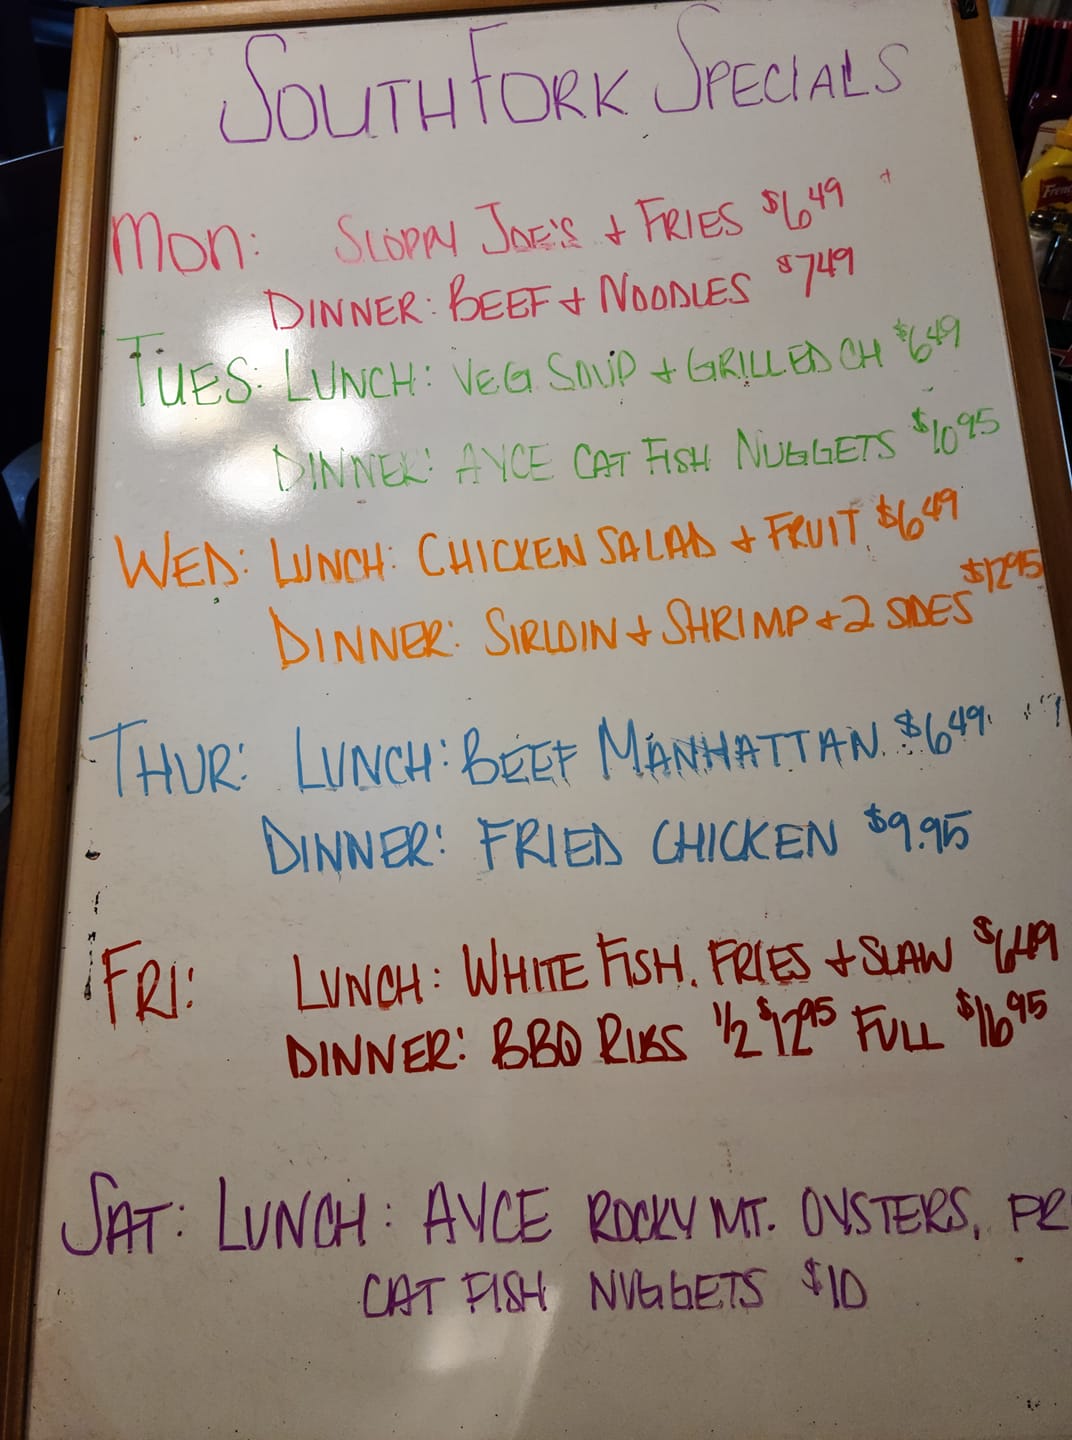 SOUTHFORK SPECIALS
MON: SLOPPY JOE'S + FRIES $6 49
DINNER: BEEF + NOODLES $7 49
TUES: LUNCH: VEG SOUP + GRILLED CH $6 49
DINNER: AYCE CAT FISH NUGGETS $10 95
WED: LUNCH: CHICKEN SALAD + FRUIT $6 49
DINNER: SIRLOIN + SHRIMP + 2 SIDES $12 95
THUR: LUNCH: BEEF MANHATTAN $6 49
DINNER: FRIED CHICKEN $9.95
FRI: LUNCH: WHITE FISH, FRIES + SLAW $6 49
DINNER: BBQ RIBS 1/2 $12 95 FULL $16 95
SAT: LUNCH: AYCE ROCKY MT. OYSTERS,
CAT FISH NUGGETS $10